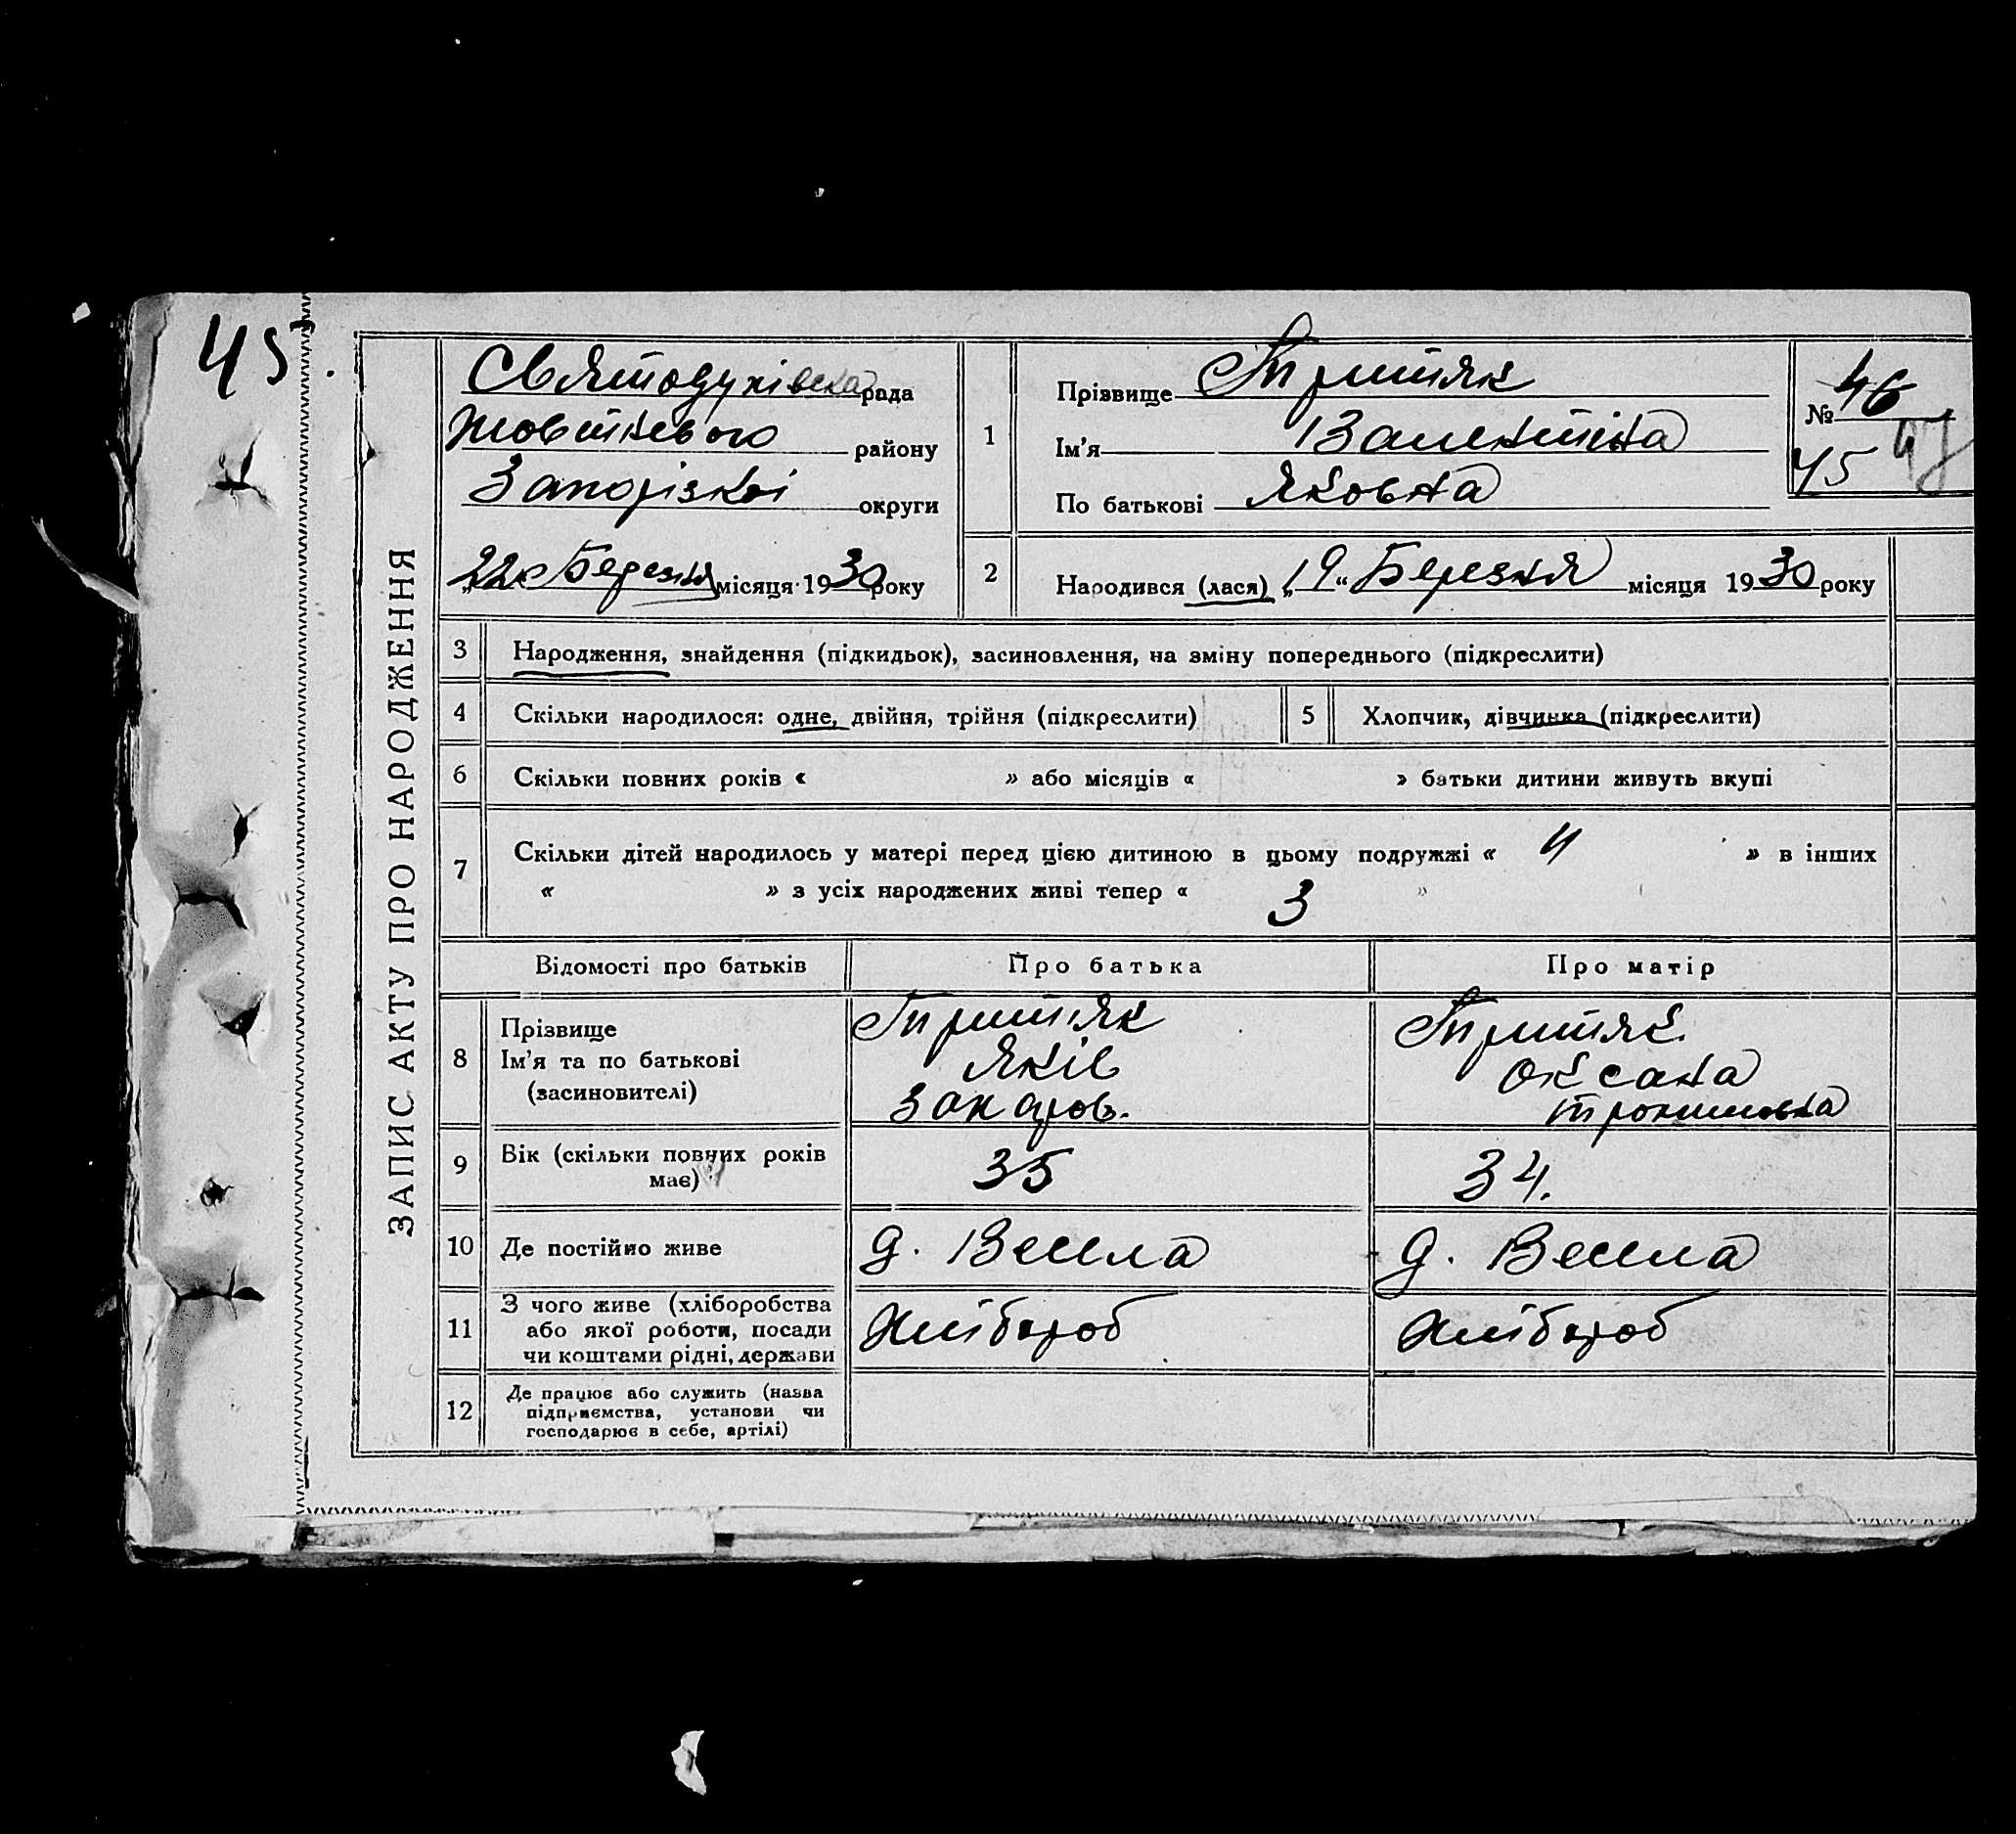 45.
ЗАПИС АКТУ ПРО НАРОДЖЕННЯ
Святодухівська рада
Жовтневого району
Запоріскої округи
„22" Березня місяця 1930 року
1
Прізвище Притяк
Ім'я Валентіна
По батькові Яковна
№ 46
45 47
2 Народився (лася) „19" Березня місяця 1930 року
3 Народження, знайдення (підкидьок), засиновлення, на зміну попереднього (підкреслити)
4 Скільки народилося: одне, двійня, трійня (підкреслити)
5 Хлопчик, дівчинка (підкреслити)
6 Скільки повних років « » або місяців « » батьки дитини живуть вкупі
7 Скільки дітей народилось у матері перед цією дитиною в цьому подружжі « 4 » в інших
« » з усіх народжених живі тепер « 3 »
Відомості про батьків Про батька Про матір
8 Прізвище
Ім'я та по батькові
(засиновителі)
Притяк
Яків
Захаров.
Притяк
Оксана
9 Вік (скільки повних років
має)
35
34.
10 Де постійно живе д. Весела д. Весела
11 З чого живе (хліборобства
або якої роботи, посади
чи коштами рідні, держави
Хлібороб
Хлібороб
12 Де працює або служить (назва
підприємства, установи чи
господарює в себе, артілі)